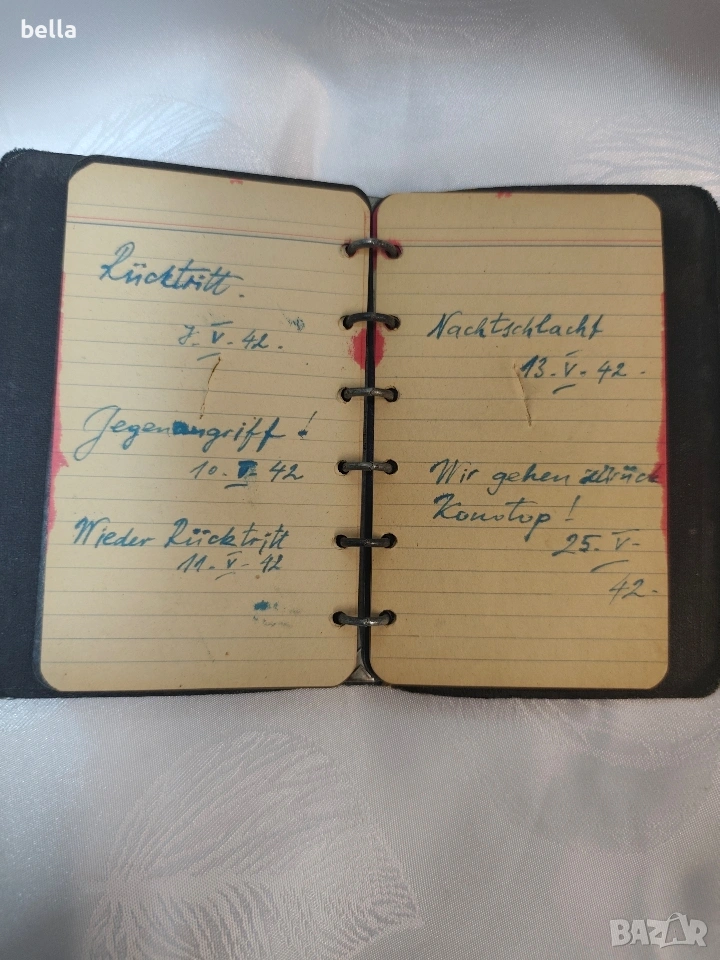 bella
Rücktritt.
7. V - 42.
Gegenangriff!
10. V - 42
Wieder Rücktritt
11. V - 42
Nachtschlacht
13. V - 42.
Wir gehen zurück
Konotop!
25. V -
42.
BAZAR